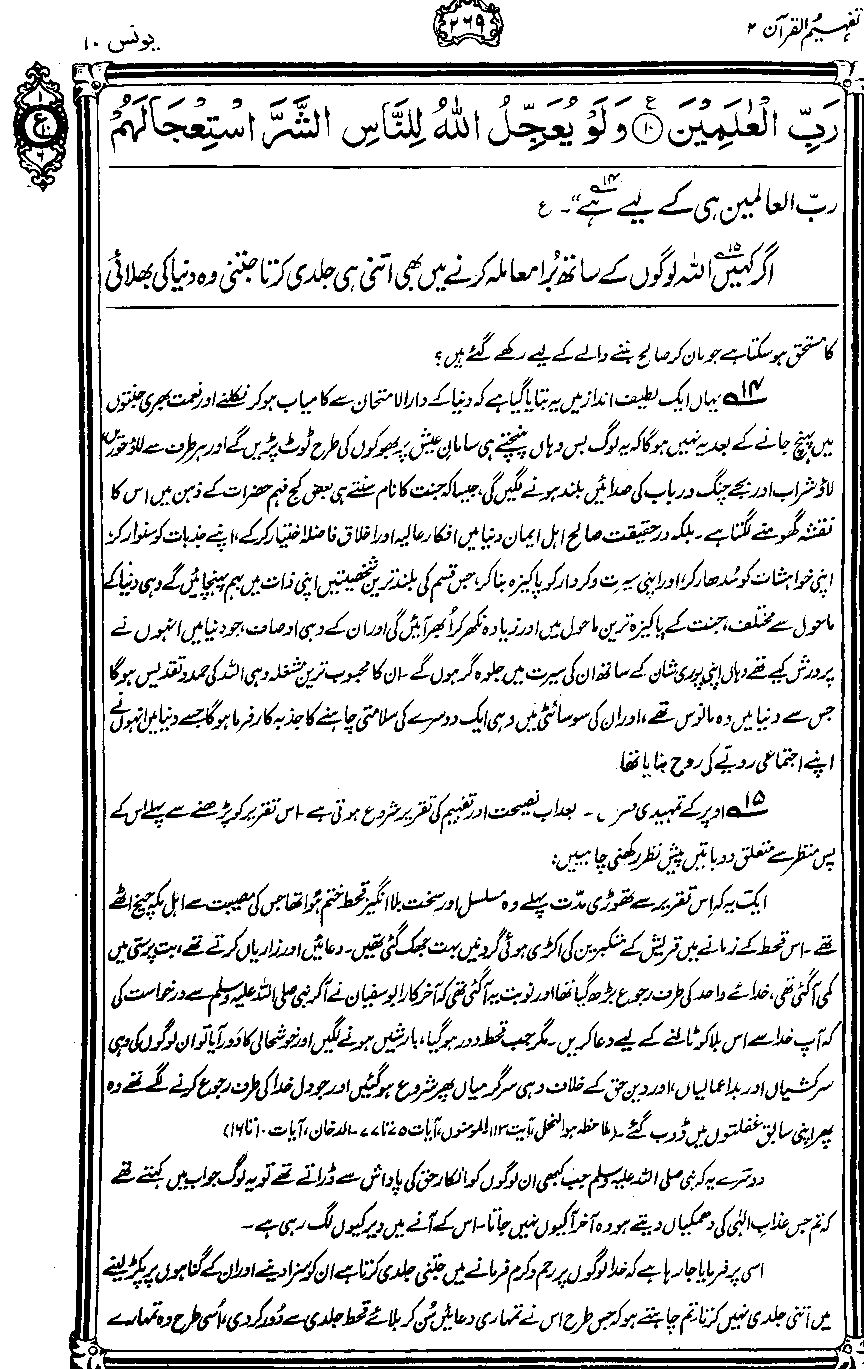 تفہیم القرآن ۲
۲۶۹
یونس ۱۰
رَبِّ الْعٰلَمِیْنَ ۱۰ وَلَوْ یُعَجِّلُ اللّٰهُ لِلنَّاسِ الشَّرَّ اسْتِعْجَالَهُمْ
ربّ العالمین ہی کے لیے ہے"۱۴۔ ع
اگر کہیں۱۵ اللہ لوگوں کے ساتھ بُرا معاملہ کرنے میں بھی اتنی ہی جلدی کرتا جتنی وہ دنیا کی بھلائی
کا مستحق ہو سکتا ہے جو مان کر صالح بننے والے کے لیے رکھے گئے ہیں؟
۱۴ یہاں ایک لطیف انداز میں یہ بتایا گیا ہے کہ دنیا کے دارالامتحان سے کامیاب ہو کر نکلنے اور نعمت بھری جنتوں
میں پہنچ جانے کے بعد یہ نہیں ہوگا کہ یہ لوگ بس وہاں پہنچتے ہی سامانِ عیش پر بھوکوں کی طرح ٹوٹ پڑیں گے اور ہر طرف سے لاؤ حوریں
لاؤ شراب اور بجے چنگ و رباب کی صدائیں بلند ہونے لگیں گی، جیسا کہ جنت کا نام سنتے ہی بعض کج فہم حضرات کے ذہن میں اس کا
نقشہ گھومنے لگتا ہے۔ بلکہ درحقیقت صالح اہل ایمان دنیا میں افکار عالیہ اور اخلاق فاضلہ اختیار کر کے، اپنے جذبات کو سنوار کر،
اپنی خواہشات کو سُدھار کر، اور اپنی سیرت و کردار کو پاکیزہ بنا کر، جس قسم کی بلند ترین شخصیتیں اپنی ذات میں بہم پہنچائیں گے وہی دنیا کے
ماحول سے مختلف، جنت کے پاکیزہ ترین ماحول میں اور زیادہ نکھر کر اُبھر آئیں گی اور ان کے وہی اوصاف، جو دنیا میں انہوں نے
پرورش کیے تھے وہاں اپنی پوری شان کے ساتھ ان کی سیرت میں جلوہ گر ہوں گے۔ ان کا محبوب ترین مشغلہ وہی اللہ کی حمد و تقدیس ہوگا
جس سے دنیا میں وہ مانوس تھے، اور ان کی سوسائٹی میں وہی ایک دوسرے کی سلامتی چاہنے کا جذبہ کارفرما ہوگا جسے دنیا میں انہوں نے
اپنے اجتماعی رویّے کی روح بنایا تھا
۱۵ اوپر کے تمہیدی بعد اب نصیحت اور تفہیم کی تقریر شروع ہوتی ہے۔ اس تقریر کو پڑھنے سے پہلے اس کے
پس منظر سے متعلق دو باتیں پیش نظر رکھنی چاہییں:
ایک یہ کہ اس تقریر سے تھوڑی مدّت پہلے وہ مسلسل اور سخت بلا انگیز قحط ختم ہوا تھا جس کی مصیبت سے اہل مکہ چیخ اٹھے
تھے۔ اس قحط کے زمانے میں قریش کے متکبرین کی اکڑی ہوئی گردنیں بہت جھک گئی تھیں۔ دعائیں اور زاریاں کرتے تھے، بت پرستی میں
کمی آگئی تھی، خدائے واحد کی طرف رجوع بڑھ گیا تھا اور نوبت یہ آگئی تھی کہ آخرکار ابوسفیان نے آکر نبی صلی اللہ علیہ وسلم سے درخواست کی
کہ آپ خدا سے اس بلا کو ٹالنے کے لیے دعا کریں۔ مگر جب قحط دور ہو گیا، بارشیں ہونے لگیں اور خوشحالی کا دَور آیا تو ان لوگوں کی وہی
سرکشیاں اور بداعمالیاں، اور دین حق کے خلاف وہی سرگرمیاں پھر شروع ہوگئیں اور جو دل خدا کی طرف رجوع کرنے لگے تھے وہ
پھر اپنی سابق غفلتوں میں ڈوب گئے۔ (ملاحظہ ہو النحل، آیت ۱۱۳۔ المومنون، آیات ۷۵ تا ۷۷۔ الدخان، آیات ۱۰ تا ۱۶)
دوسرے یہ کہ نبی صلی اللہ علیہ وسلم جب کبھی ان لوگوں کو انکار حق کی پاداش سے ڈراتے تھے تو یہ لوگ جواب میں کہتے تھے
کہ تم جس عذاب الٰہی کی دھمکیاں دیتے ہو وہ آخر آ کیوں نہیں جاتا۔ اس کے آنے میں دیر کیوں لگ رہی ہے۔
اسی پر فرمایا جا رہا ہے کہ خدا لوگوں پر رحم و کرم فرمانے میں جتنی جلدی کرتا ہے ان کو سزا دینے اور ان کے گناہوں پر پکڑ لینے
میں اتنی جلدی نہیں کرتا۔ تم چاہتے ہو کہ جس طرح اس نے تمہاری دعائیں سُن کر بلائے قحط جلدی سے دُور کر دی، اُسی طرح وہ تمہارے